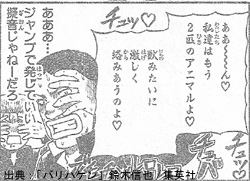 チュッ♡
ああ～～～ん♡
私達はもう
２匹のアニマルよ♡
獣みたいに
激しく
絡みあうのよ♡
あああ…
ジャンプで発していい
擬音じゃねーだろ
チュバ
出典：「バリハケン」鈴木信也　集英社